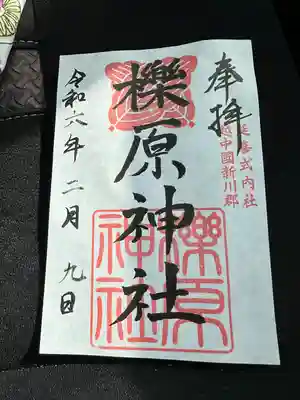 奉拝
延喜式内社
越中國新川郡
櫟原神社
櫟原
神社
令和六年二月九日